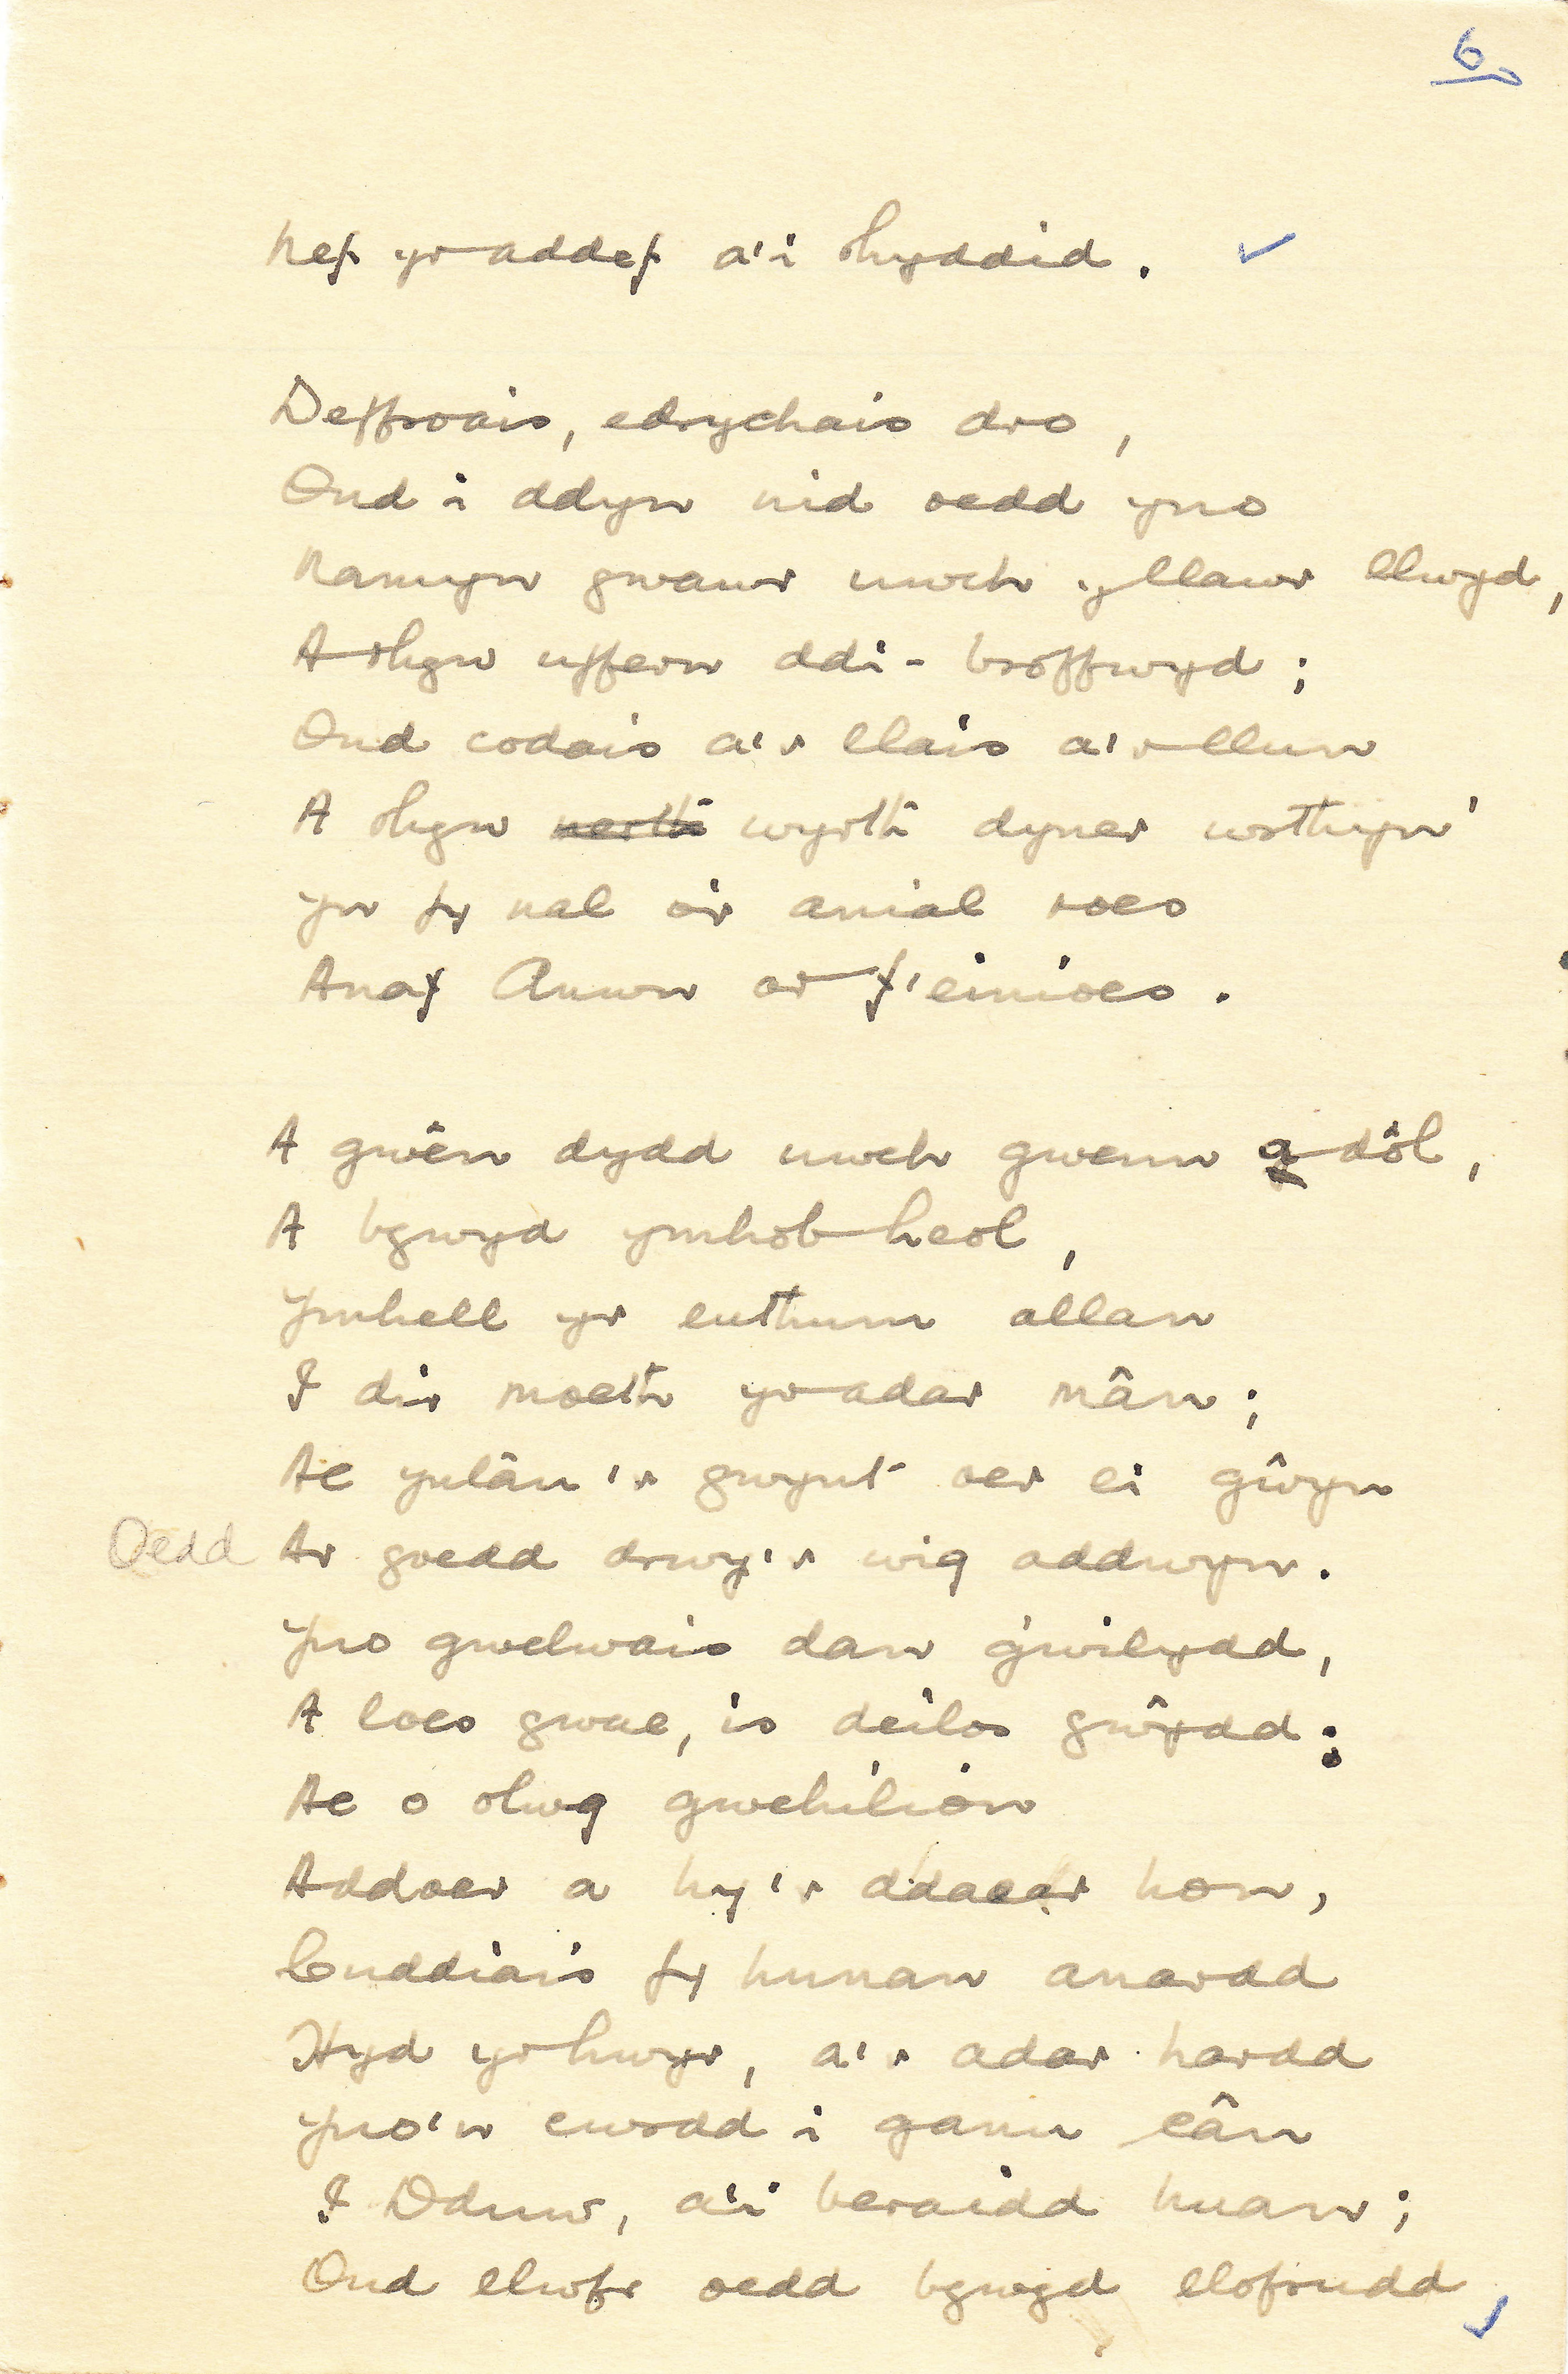 6
Nef yr addef a'i rhyddid.
Deffroais, edrychais dro,
Ond i ddyn nid oedd yno
Namyn gwawr uwch y llawr llwyd,
A rhyn uffern ddi-broffwyd;
Ond codais a'r llais a'r llun
A rhyw nerth wyrth dyner wrthyn'
Yn fy nal o'r anial roes
Anaf Annwn ar f'einioes.
A gwên dydd uwch gwenn a dôl,
A bywyd ymhob heol,
Ymhell yr euthum allan
I dir moeth yr adar mân;
Ac ynlân 'r gwynt oer ei gŵyn
Oedd Ar goedd drwy'r wig addwyn.
Yno gwelwais dan g'wilydd,
A loes gwae, is deilos gwŷdd;
Ac o olwg gwehilion
Addoer a hy'r ddaear hon,
Cuddiais fy hunan anardd
Hyd yr hwyr, a'r adar hardd
Yno'n cwrdd i ganu cân
I Dduw, a'i beraidd huan;
Ond llwfr oedd bywyd llofrudd